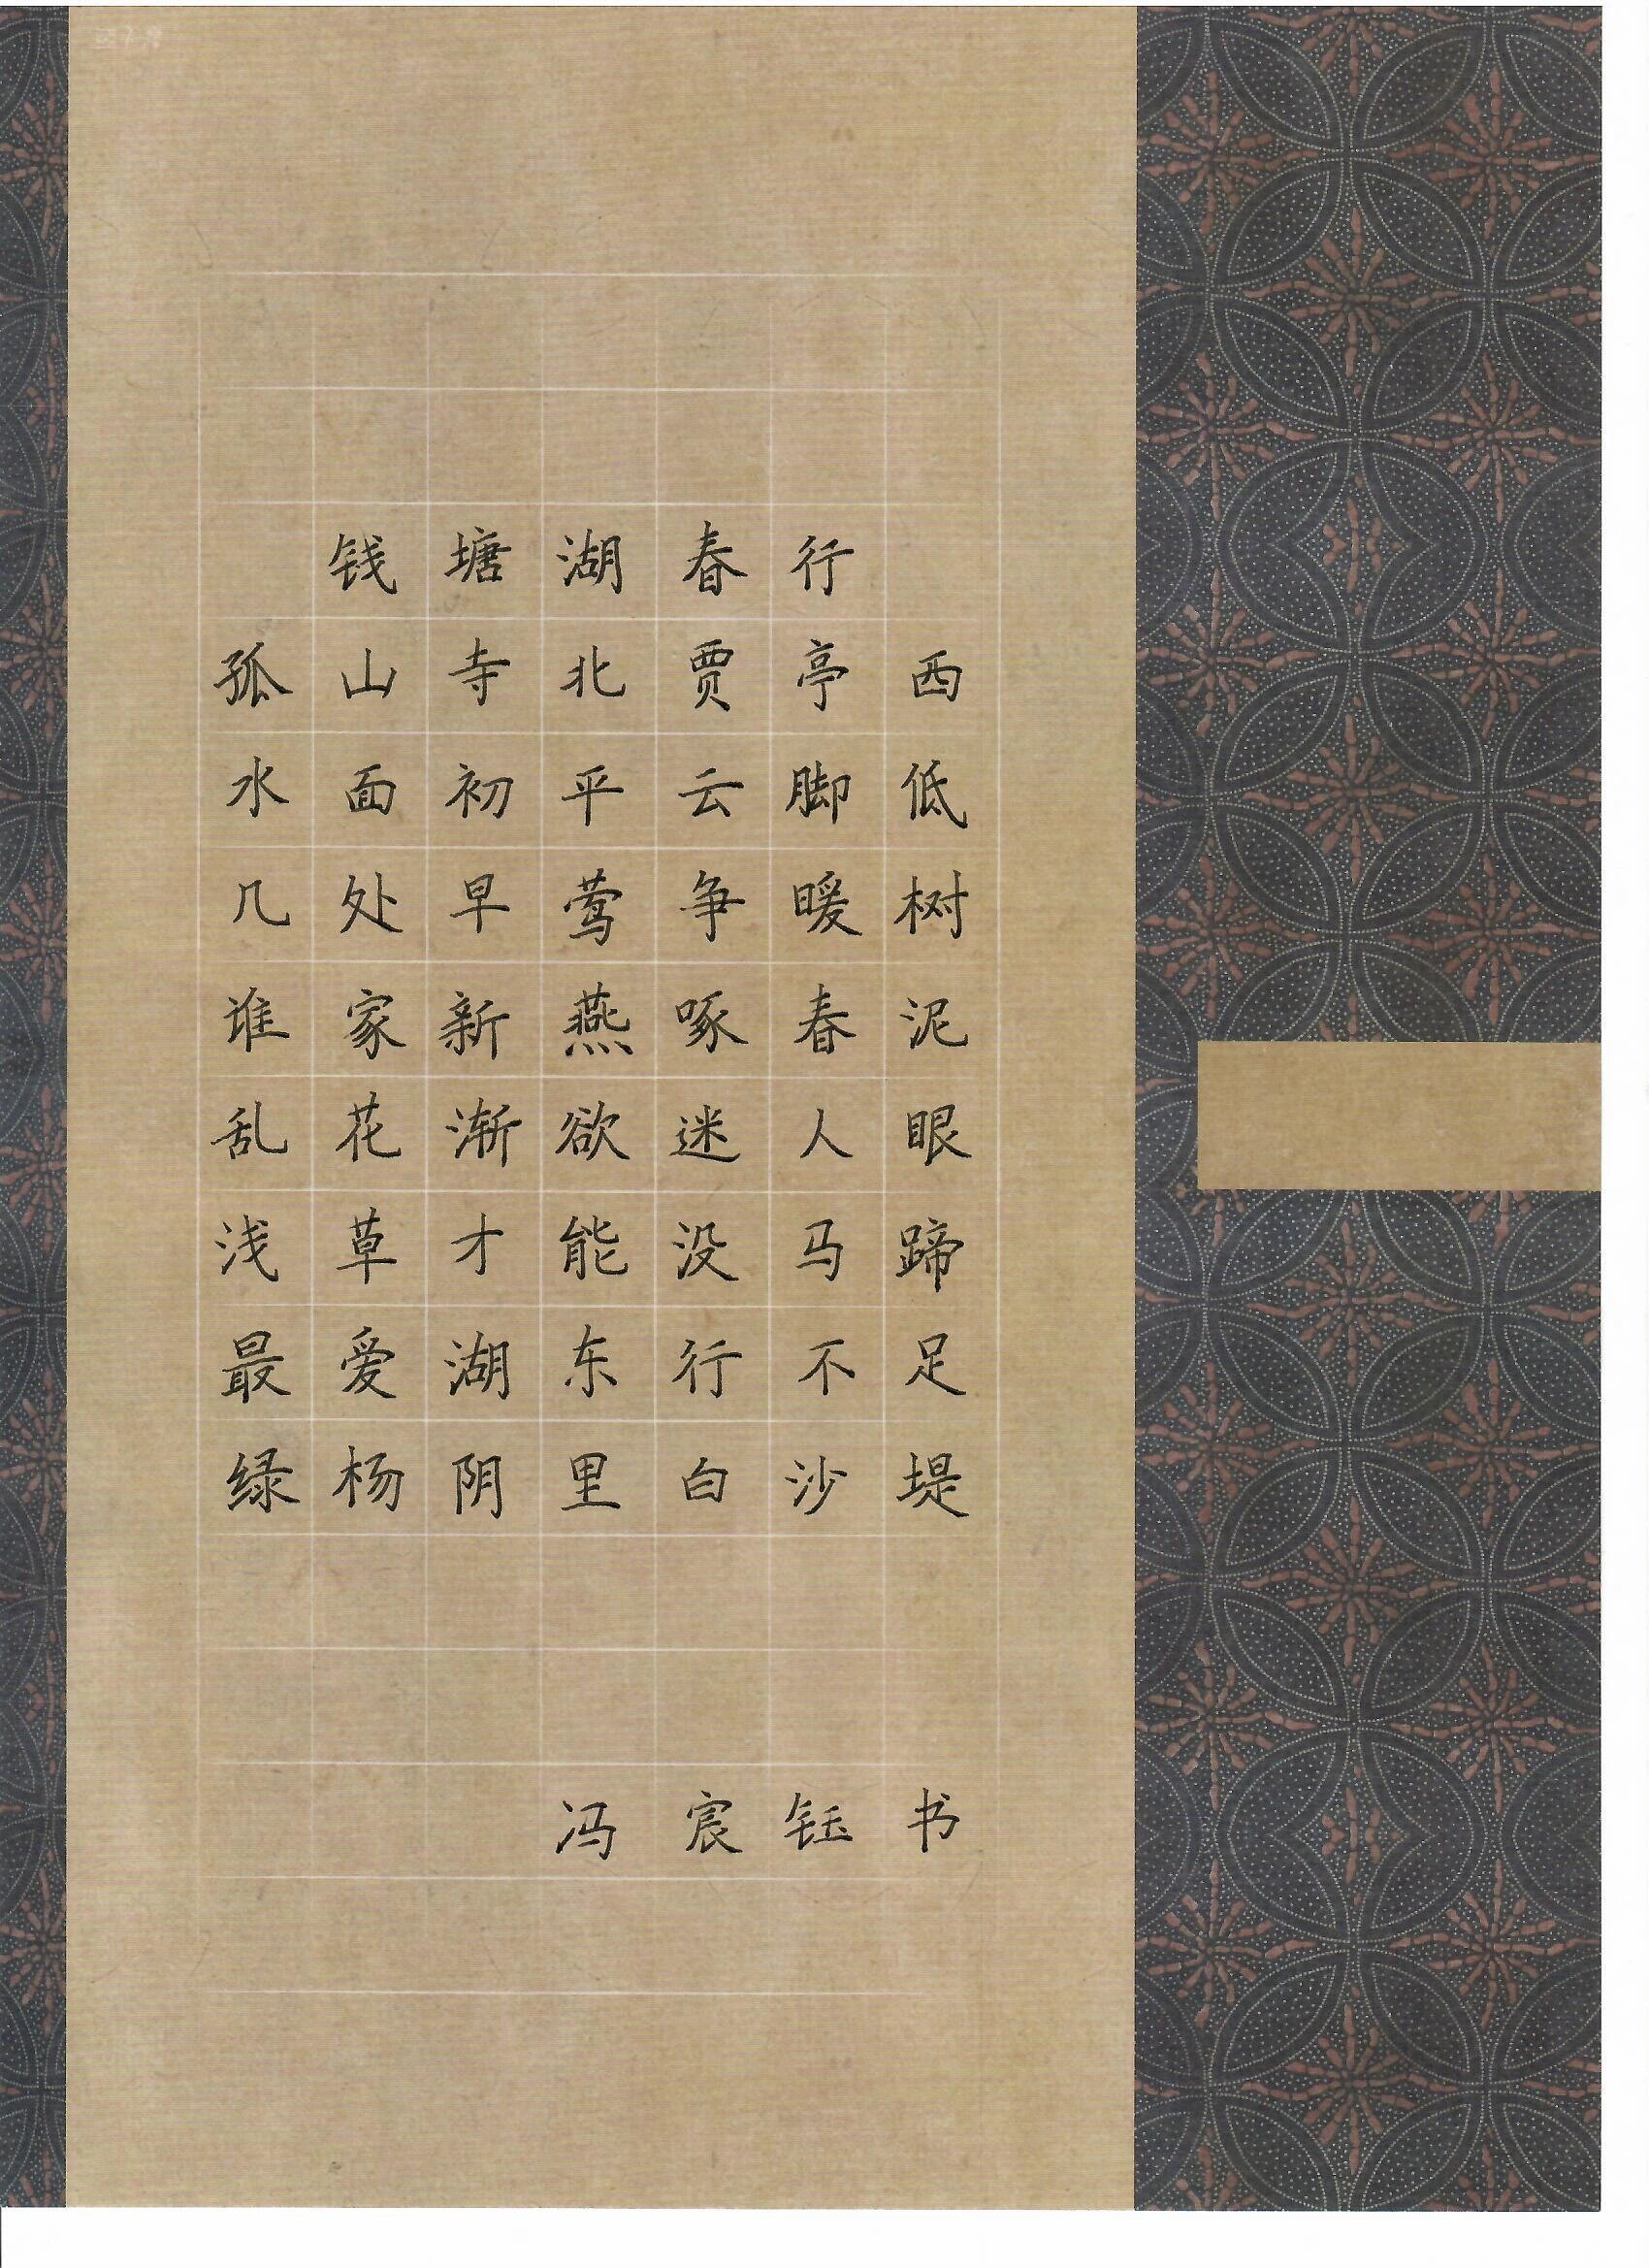 钱塘湖春行
孤山寺北贾亭西
水面初平云脚低
几处早莺争暖树
谁家新燕啄春泥
乱花渐欲迷人眼
浅草才能没马蹄
最爱湖东行不足
绿杨阴里白沙堤
冯宸钰书